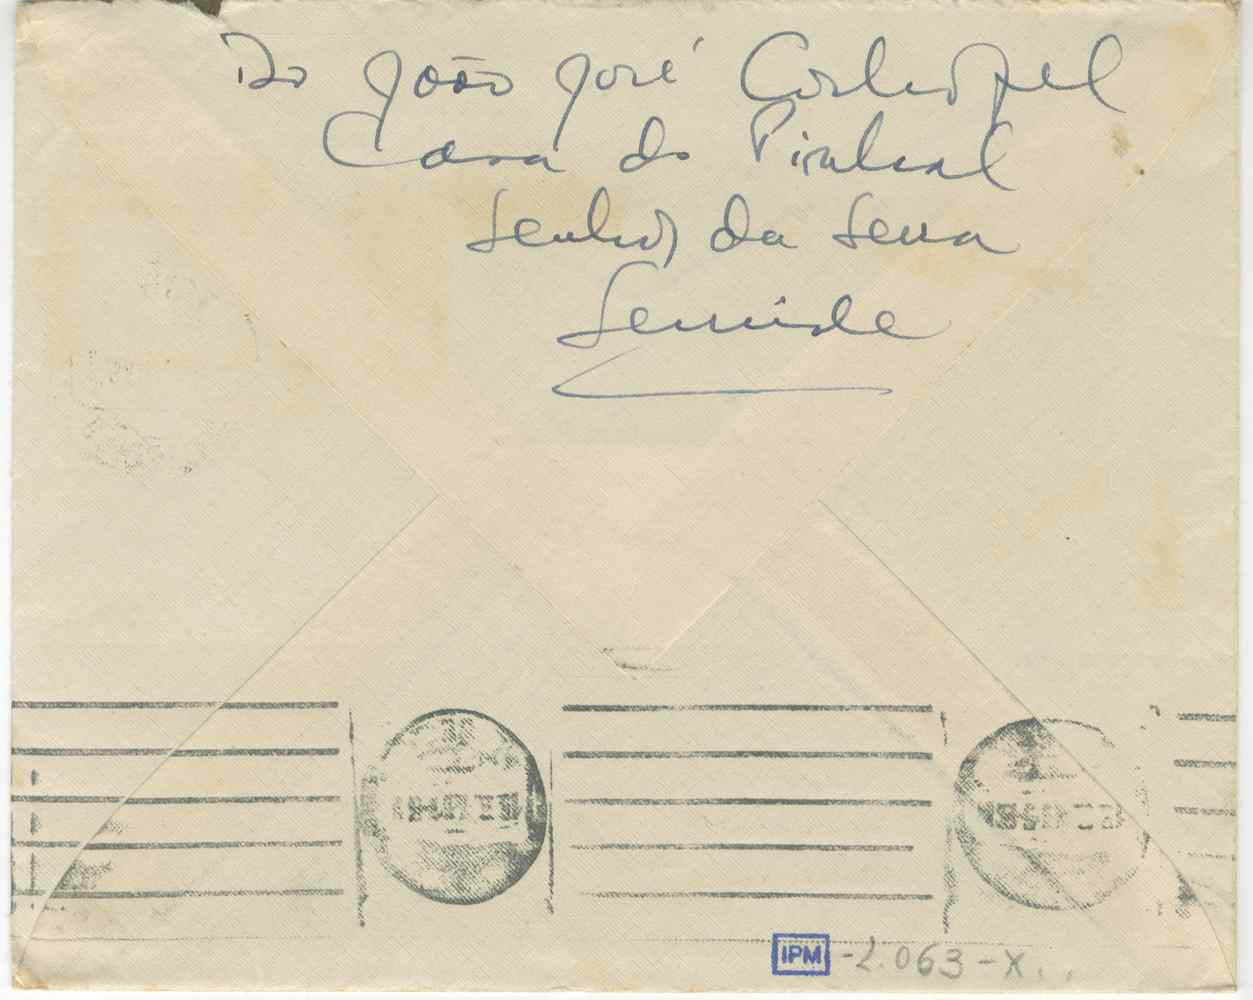 Do João José Cochofel
Casa do Pinhal
Senhor da Serra
Semide
IPM -2.063-X